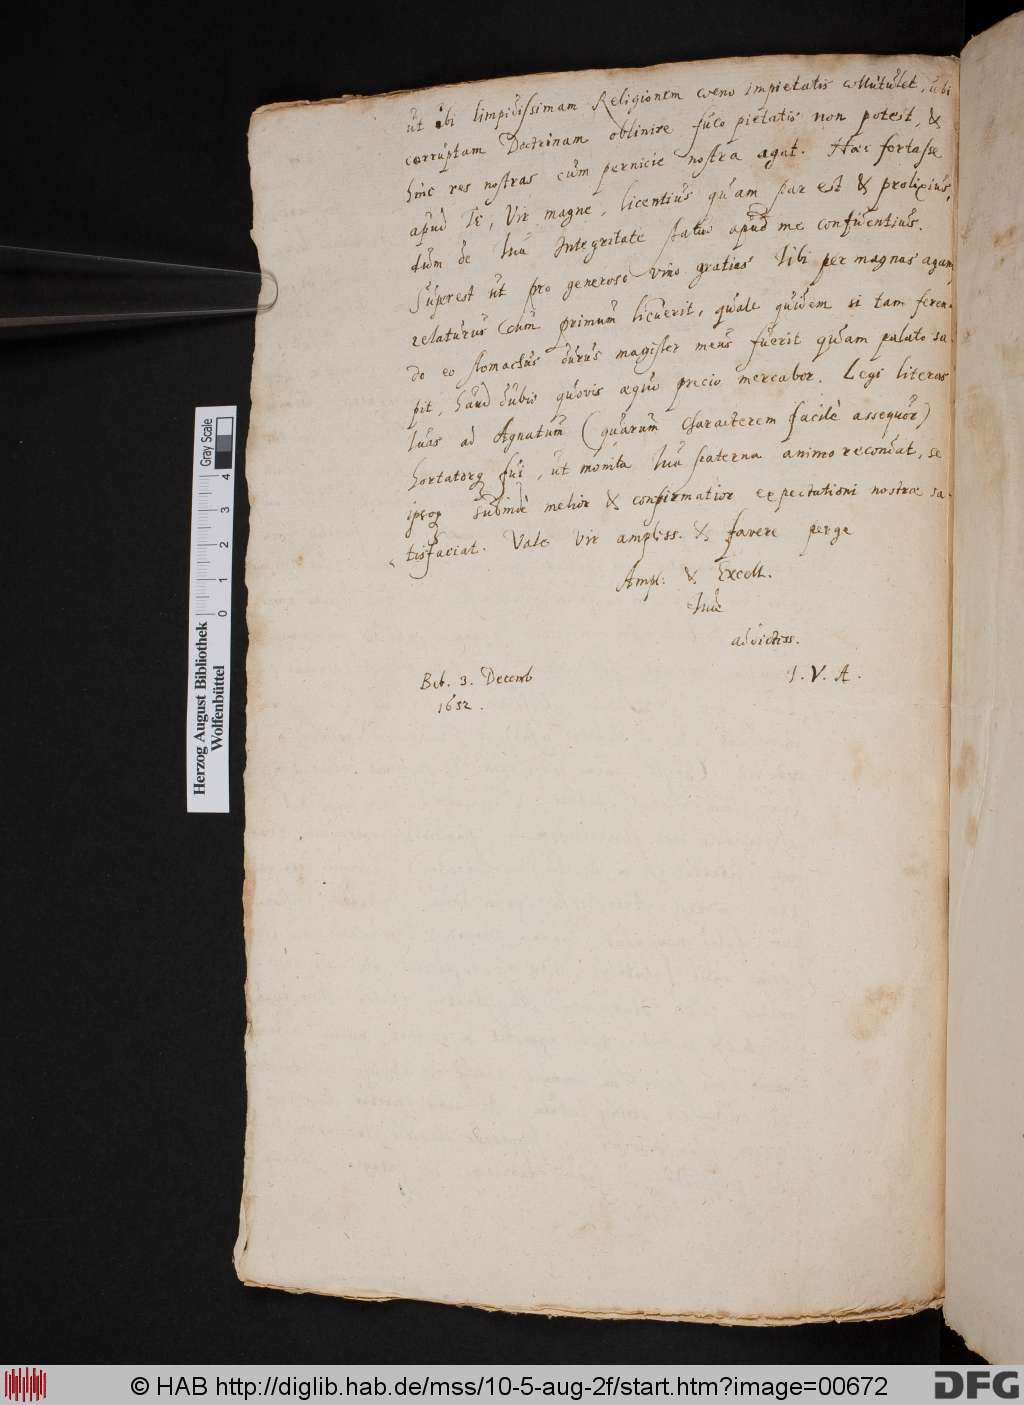 ut ibi limpidissimam Religionem coeno impietatis collutulet, ubi
corruptam Doctrinam oblinire fuco pietatis non potest, &
hinc res nostras cum pernicie nostra agat. Haec fortasse
apud Te, Vir magne, licentius quam par est & prolixius,
dum de tua Integritate statuo apud me confidentius.
Superest ut pro generoso vino gratias tibi per magnas agam,
relaturus cum primum licuerit, quale quidem si tam feren-
do eo stomachus durus magister meus fuerit quam palato sa-
pit, haud dubio quovis aequo precio mercabor. Legi literas
tuas ad Agnatum (quarum characterem facilè assequor)
hortatorq fui, ut monita tua paterna animo recondat, se
ipsoq subinde melior & confirmatior expectationi nostrae sa-
tisfaciat. Vale Vir ampliss. & favere perge
Ampl: & Excell.
Tuae
addictiss.
I. V. A.
Beb. 3. Decemb
1652.
Herzog August Bibliothek
Wolfenbüttel
0 1 2 3 4
Gray Scale
© HAB http://diglib.hab.de/mss/10-5-aug-2f/start.htm?image=00672
DFG